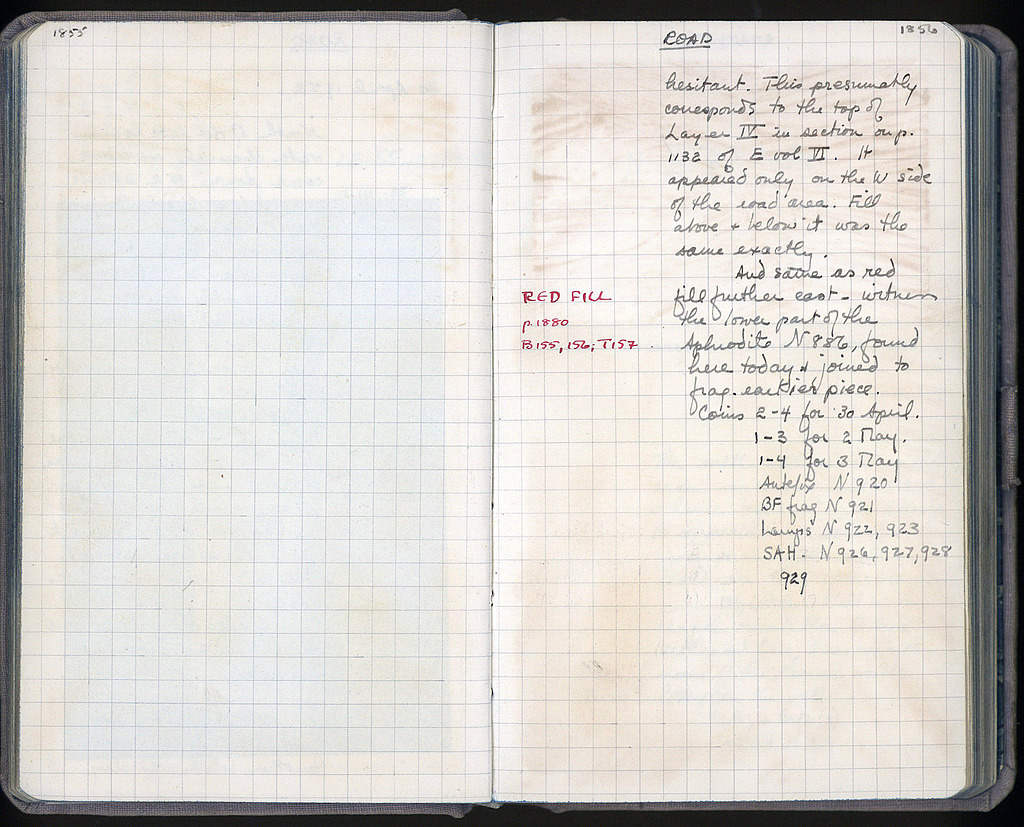 1855
1856
ROAD
hesitant. This presumably
corresponds to the top of
Layer IV in section on p.
1132 of E vol VI. It
appeared only on the W side
of the road area. Fill
above + below it was the
same exactly.
And same as red
fill further east - witness
the lower part of the
Aphrodite N 886, found
here today & joined to
frag. earlier piece.
Coins 2-4 for 30 April.
1-3 for 2 May.
1-4 for 3 May
Antefix N 920
BF frag N 921
Lamps N 922, 923
SAH. N 926, 927, 928
929
RED FILL
p. 1880
B 155, 156; T 157